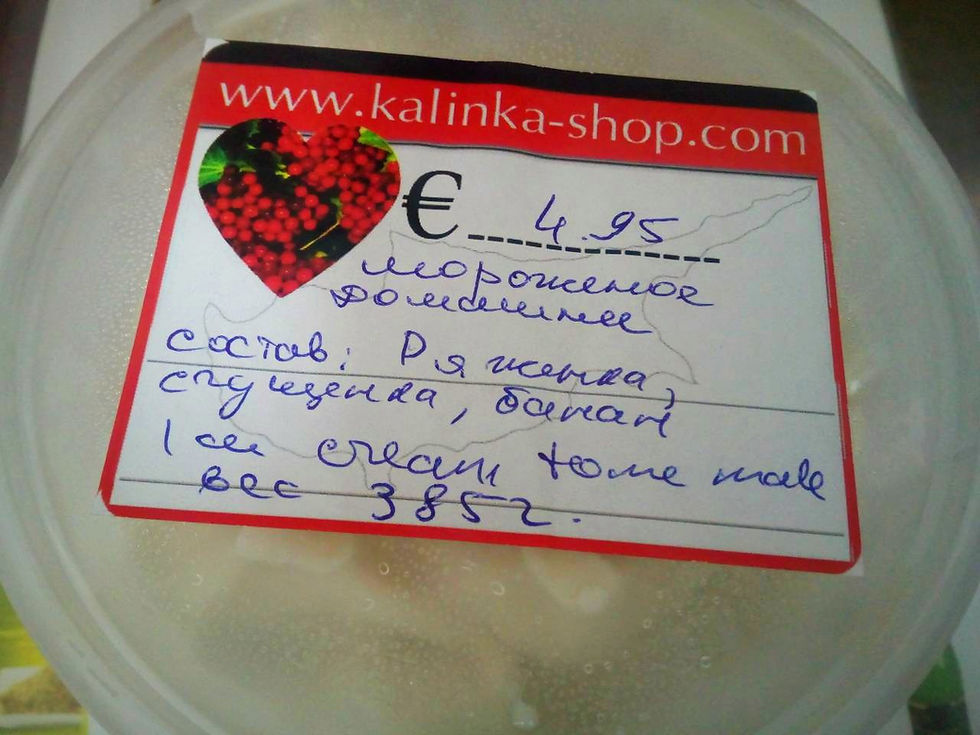 www.kalinka-shop.com
€ 4.95
мороженое
домашнее
состав: Ряженка,
сгущенка, банан
Ice cream, home made
вес 385г.